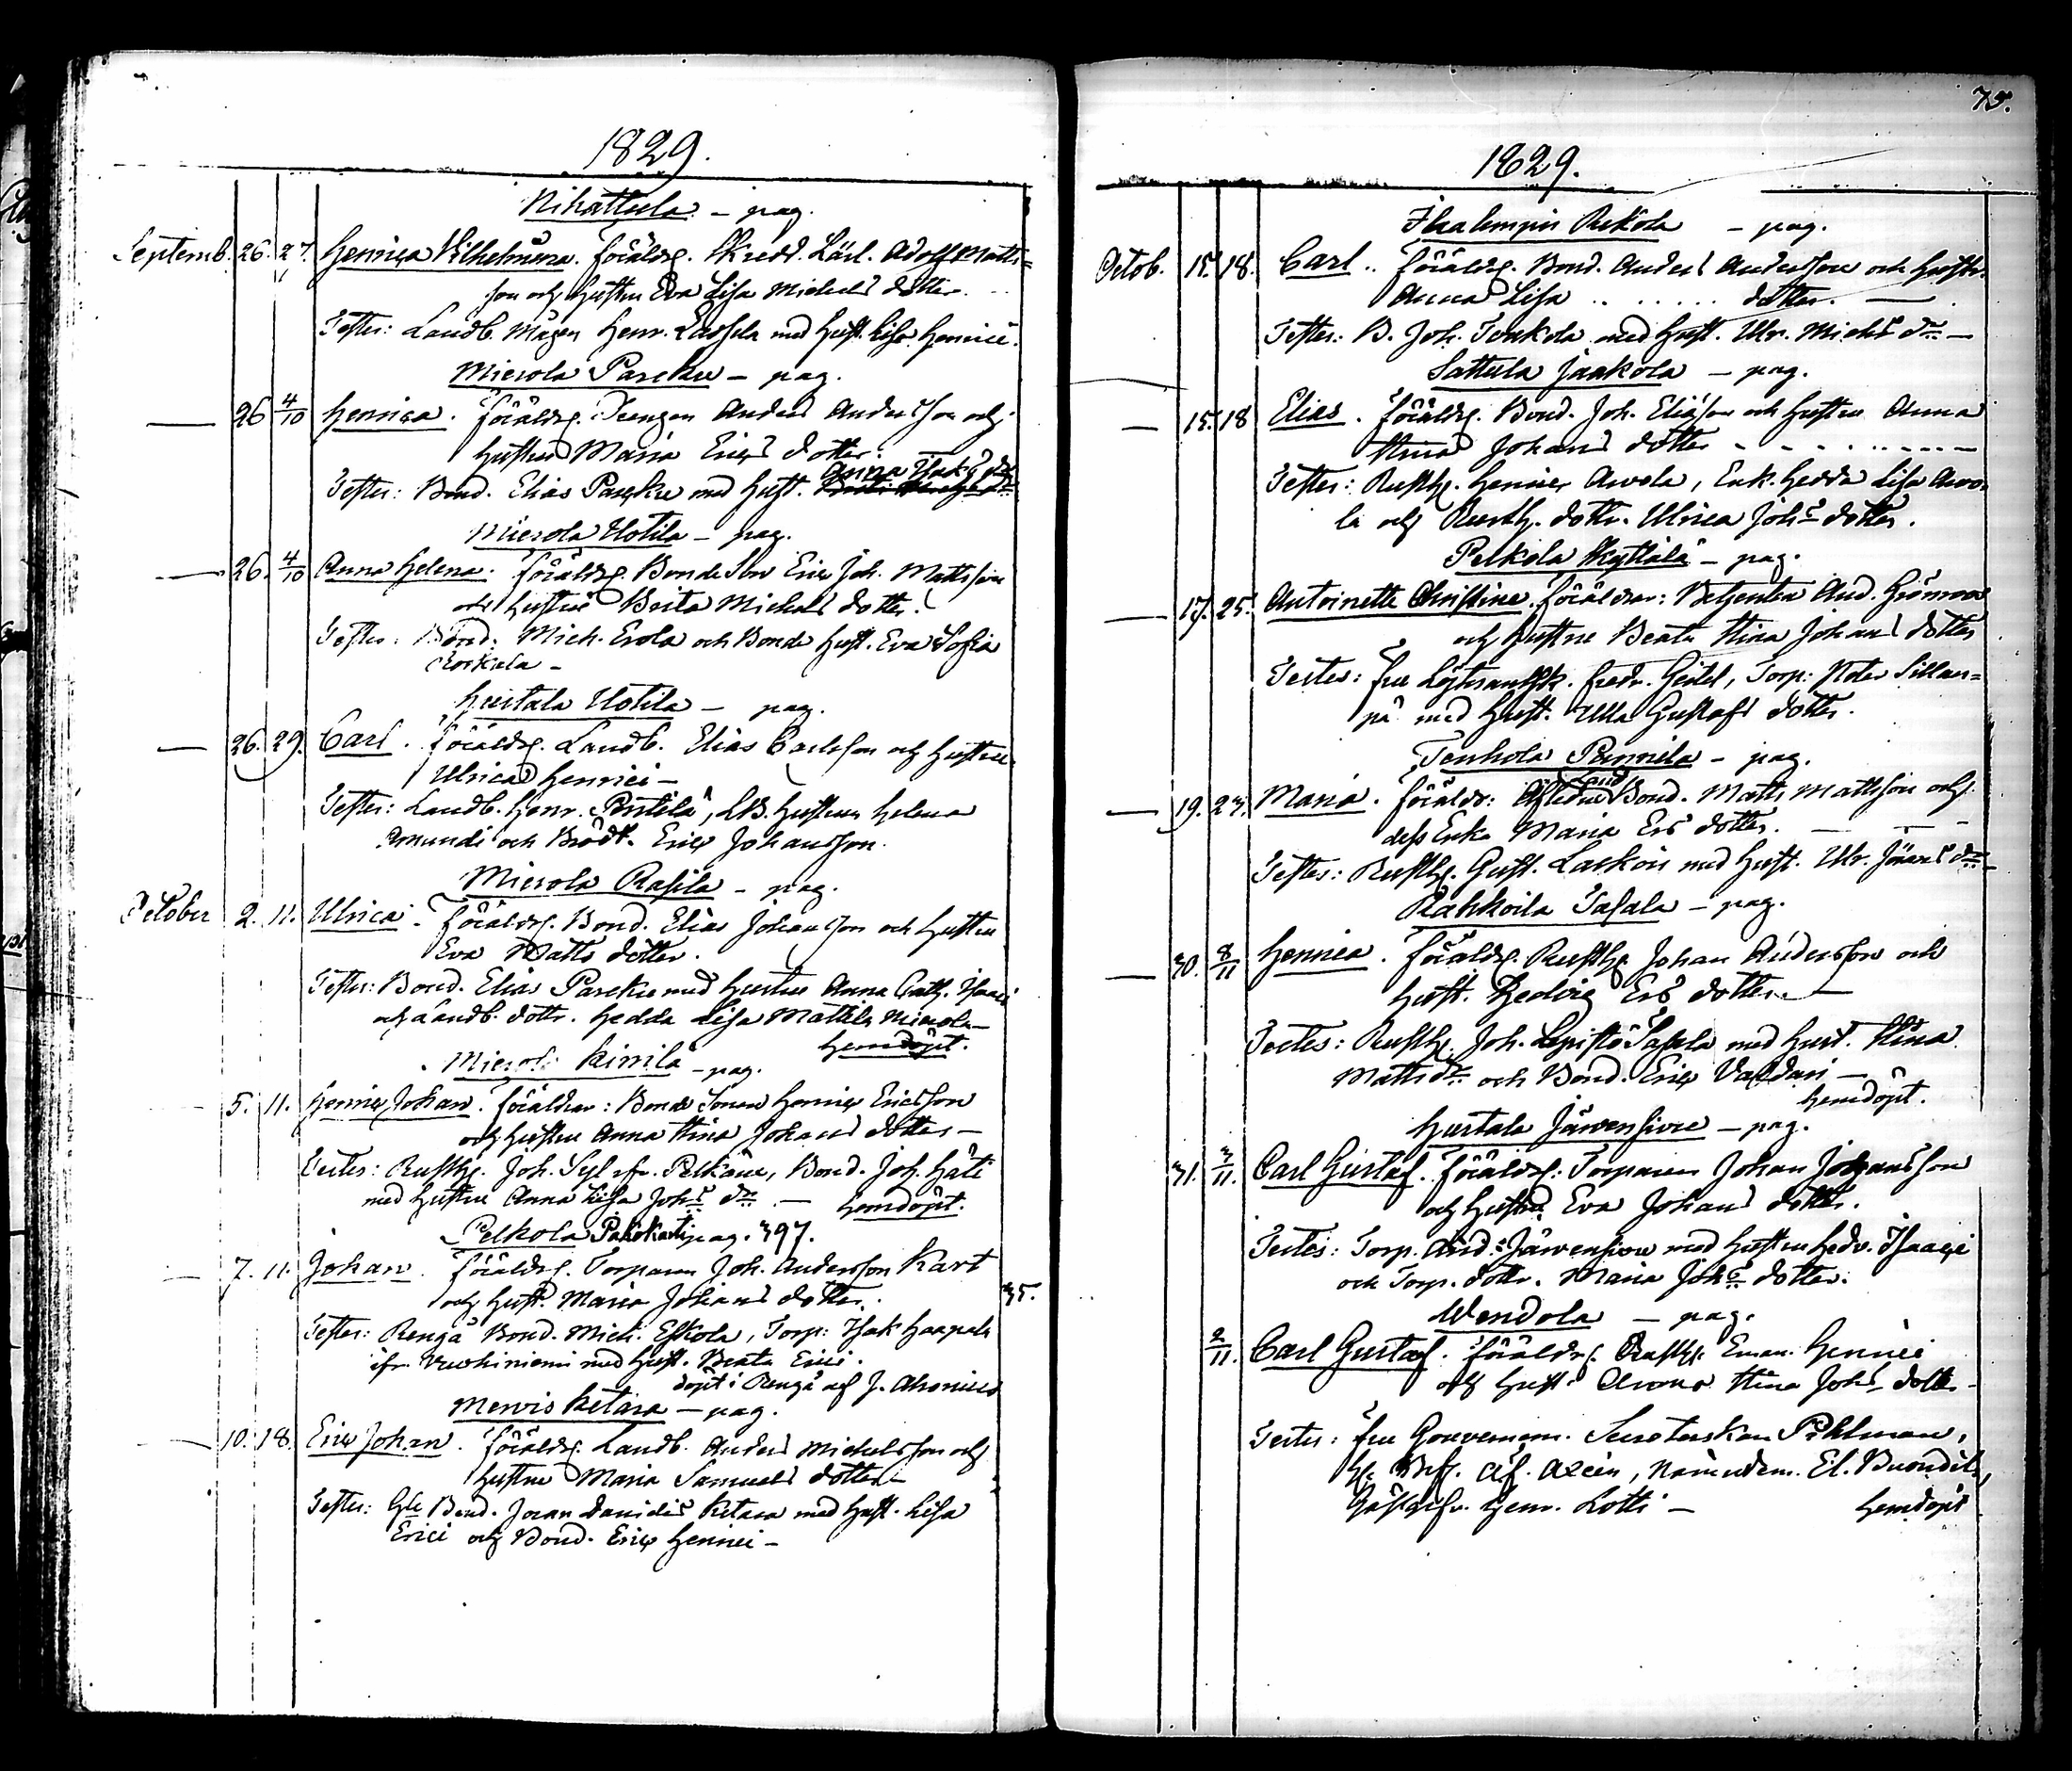 1829.
Nihattula - pag.
Septemb. 26. 27. Henrica Vilhelmina. föräldr. Skredd. Lärl. Adolf Matts=
son och hustru Eva Lisa Michels dotter.
Testes: Landb. Mågen Henr. Lassila med hust. Lisa Henrici.
Mierola Pareku - pag.
— 26 4/10 Henrica. föräldr. Drengen Anders Andersson och
hustru Maria Erics dotter.
Anna Isaks dr
Testes: Bond. Elias Pareku med hust.
Mierola Uotila - pag.
— 26. 4/10 Anna Helena. föräldr. Bonde Son Eric Joh. Mattsson
och hustru Brita Michels dotter.
Testes: Bond. Mich. Erola och Bonde hust. Eva Sofia
Hurtala Uotila - pag.
— 26. 29. Carl. föräldr. Landb. Elias Carlsson och hustru
Ulrica Henrici -
Testes: Landb. Henr. Penttilä, LB. hustrun Helena
Amundi och Brodr. Eric Johansson.
Mierola Rasila - pag.
October 2. 11. Ulrica. föräldr. Bond. Elias Johansson och hustru
Eva Matts dotter.
Testes: Bond. Elias Pareku med hustru Anna Cath. Isaaci
och Landb. dottr. Hedda Lisa Mattila Mierola -
hemdöpt.
Mierola Kinilä - pag.
5. 11. Henric Johan. föräldrar: Bonde Sonen Henric Ericsson
och hustru Anna Stina Johans dotter -
Testes: Rusth. Joh. Syl ifr. Pelkäne, Bond. Joh. Häti
med hustru Anna Lisa Johs dr — hemdöpt.
Pelkola Pakkati pag. 397.
— 7. 11. Johan. föräldr. Torparen Joh. Andersson Kart
och hust. Maria Johans dotter. 35.
Testes: Rengå Bond. Mich. Eskola, Torp: Isak Haapala
ifr. Vuohiniemi med hust. Beata Erici.
döpt i Rengå af J. Ahonius
Mervis Ketara - pag.
— 10. 18. Eric Johan. föräldr. Landb. Anders Michelsson och
hustru Maria Samuels dotter -
Testes: Gle Bond. Johan Davidis Ketara med hust. Lisa
Erici och Bond. Eric Henrici -
75.
1829.
Ihalempi Rekola - pag.
Octob. 15. 18. Carl. föräldr. Bond. Anders Andersson och hustr.
Anna Lisa . . . . . . dotter. —
Testes: B. Joh. Tenkola med hust. Ulr. Michs dr —
Sattula Jaakola - pag.
— 15. 18 Elias. föräldr. Bond. Joh. Eliasson och hustru Anna
Stina Johans dotter - - - - - -
Testes: Rusth. Henric Arvola, Enk. Hedda Lisa Arvo=
la och Rusth. dottr. Ulrica Johs dotter.
Pelkola Kyttälä - pag.
— 17. 25. Antoinette Christine. föräldrar: Betjenten And. Grönroos
och hustru Beata Stina Johans dotter
Testes: fru Löjtnantsk. Fredr. Geitel, Torp: Noter Sillan=
pä med hust. Ulla Gustafs dotter.
Tenhola Pennila - pag.
Land
— 19. 27. Maria. föräldr: Aflidne Bond. Matts Mattsson och
dess Enka Maria Ers dotter. — — -
Testes: Rusth. Gust. Laskois med hust. Ulr. Jörans dr -
Rahkoila Tasala - pag.
— 30. 8/11 Henrica. föräldr. Rusth. Johan Andersson och
hust. Hedvig Ers dotter. —
Testes: Rusth. Joh. Lepistö Tasala med hust. Stina
Matts dr och Bond. Eric Valdari —
hemdöpt.
Hurtala Järvensivu - pag.
31. 3/11. Carl Gustaf. föräldr: Torparen Johan Johansson
och hustru Eva Johans dotter.
Testes: Torp. And: Järvensivu med hustru Hedv. Isaaci
och Torp. dottr. Maria Johs dotter.
Wendola - pag.
2/11. Carl Gustaf. föräldr. Rusth. Eman. Henrici
och hust. Anna Stina Johs dotter -
Testes: fru Gouvernem. Secreterskan Pihlman,
Af. Alcén, Nämndem. El. Buondila,
Henr. Lotti - hemdöpt